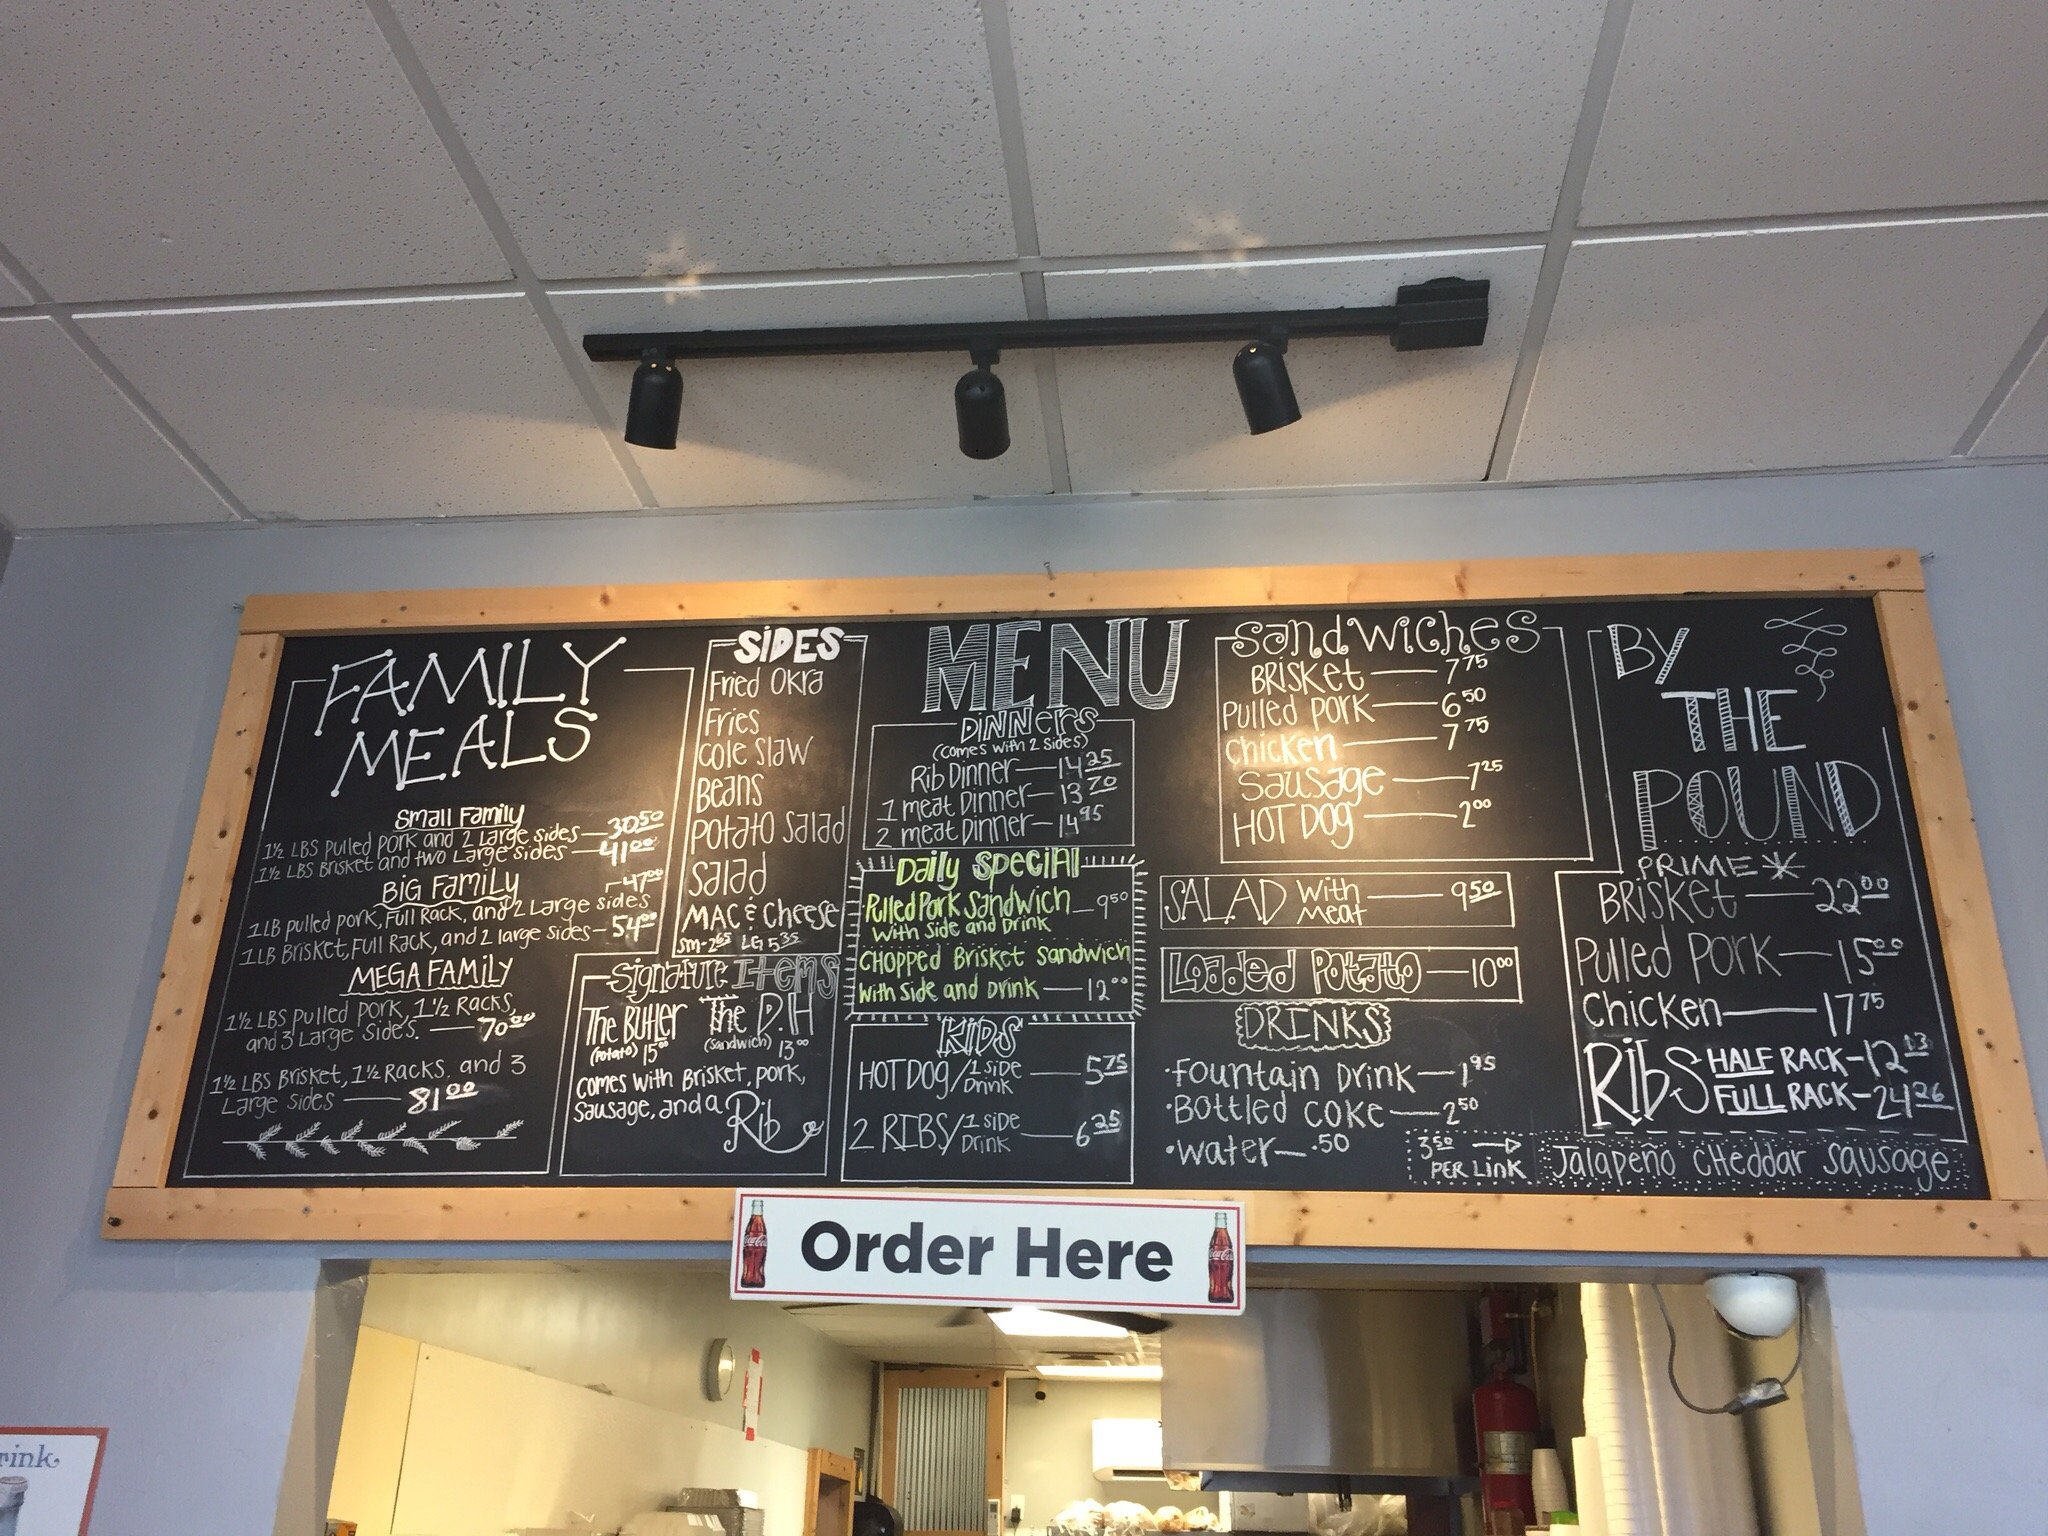 FAMILY
MEALS
Small Family
1½ LBS Pulled Pork and 2 Large sides—30.50
1½ LBS Brisket and two Large sides—41.00
BIG FAMILY
1 LB pulled pork, Full Rack, and 2 Large sides—47.00
1 LB Brisket, Full Rack, and 2 large sides—54.00
MEGA FAMILY
1½ LBS Pulled Pork, 1½ Racks,
and 3 Large Sides.—70.00
1½ LBS Brisket, 1½ Racks. and 3
Large sides—81.00
SIDES
Fried Okra
Fries
Cole Slaw
Beans
Potato Salad
Salad
MAC & Cheese
Sm-2.65 LG 5.35
Signature Items
The Butler The D.H
(Potato) 15.00 (Sandwich) 13.00
comes with Brisket, pork,
sausage, and a
Rib
MENU
DINNERS
(comes with 2 sides)
Rib Dinner—14.25
1 meat Dinner—13.70
2 meat Dinner—14.95
Daily Special
Pulled Pork Sandwich—9.50
with Side and Drink
CHOPPED Brisket Sandwich
with Side and Drink—12.00
KIDS
HOT DOG/1 side Drink—5.75
2 RIBS/1 side Drink—6.25
Sandwiches
BRISKET—7.75
Pulled Pork—6.50
Chicken—7.75
Sausage—7.25
HOT DOG—2.00
SALAD with Meat—9.50
Loaded Potato—10.00
DRINKS
·Fountain Drink—1.95
·Bottled Coke—2.50
·Water—.50
BY
THE
POUND
PRIME*
BRISKET—22.00
Pulled Pork—15.00
Chicken—17.75
RIBS HALF RACK-12.13
FULL RACK-24.26
3.50 PER LINK → Jalapeño Cheddar Sausage
Order Here
Coca-Cola
Coca-Cola
rink